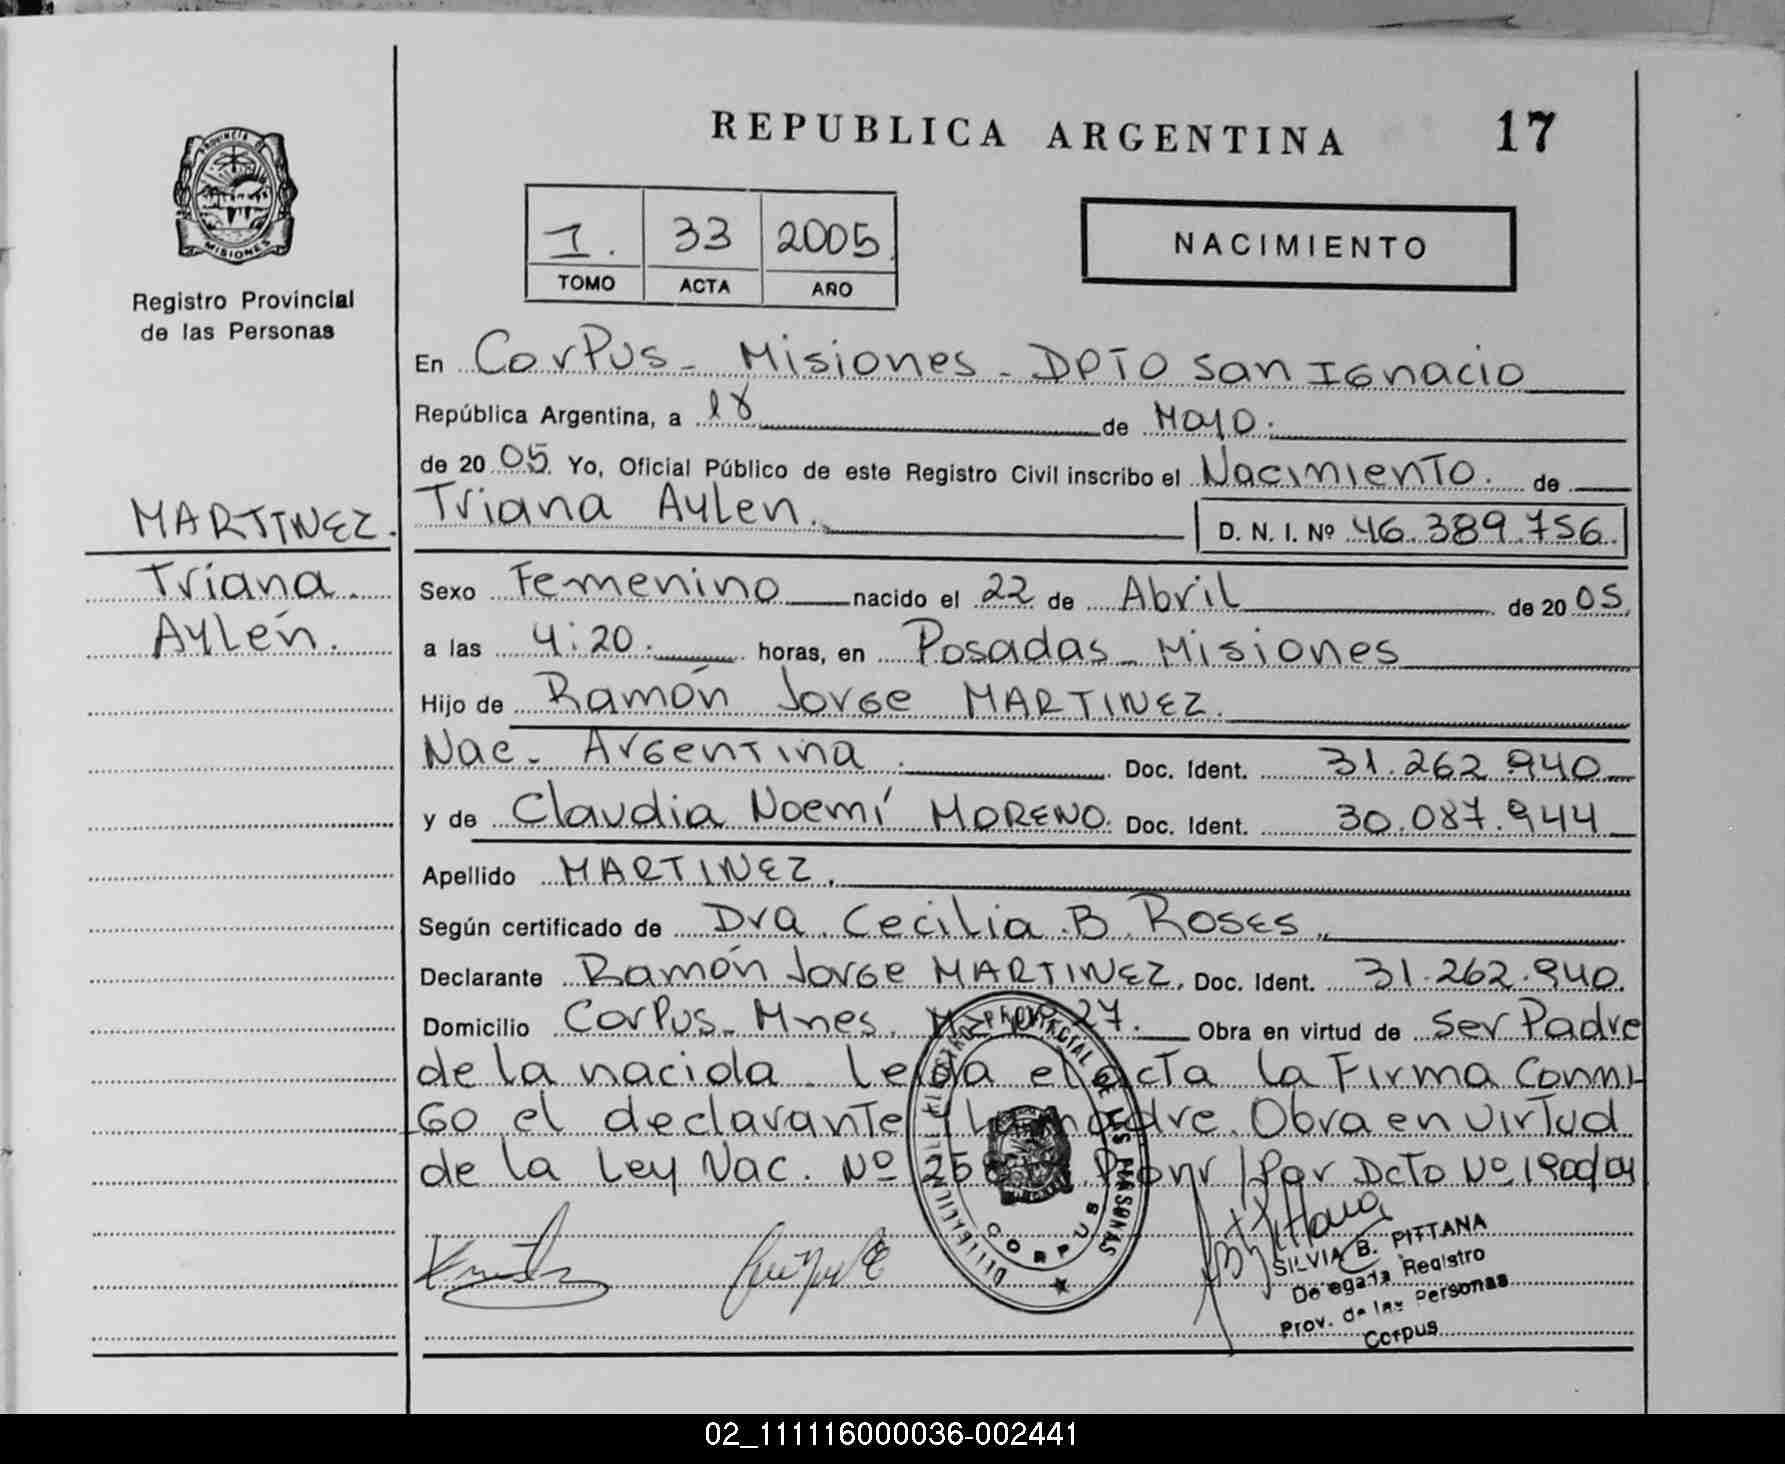 REPUBLICA ARGENTINA 17
PROVINCIA DE MISIONES
Registro Provincial
de las Personas
1. 33 2005
TOMO ACTA AÑO
NACIMIENTO
En Corpus - Misiones - DPTO San Ignacio
República Argentina, a 18 de Mayo.
de 20 05. Yo, Oficial Público de este Registro Civil inscribo el Nacimiento. de
Triana Aylen. D. N. I. Nº 46.389.756.
MARTINEZ.
Triana.
Aylén.
Sexo Femenino nacido el 22 de Abril de 20 05,
a las 4:20. horas, en Posadas - Misiones
Hijo de Ramón Jorge MARTINEZ.
Nac. Argentina. Doc. Ident. 31.262.940
y de Claudia Noemí MORENO. Doc. Ident. 30.087.944
Apellido MARTINEZ.
Según certificado de Dra. Cecilia B. Roses
Declarante Ramón Jorge MARTINEZ, Doc. Ident. 31.262.940.
Domicilio Corpus - Mnes. 27. Obra en virtud de ser Padre
de la nacida. Leida el acta la Firma Conmi-
go el declarante y la madre. Obra en virtud
de la Ley Nac. Nº Por Dcto Nº 1900/04
REGISTRO PROVINCIAL DE LAS PERSONAS
CORPUS
SILVIA B. PITTANA
Delegada Registro
Prov. de las Personas
Corpus
02_111116000036-002441